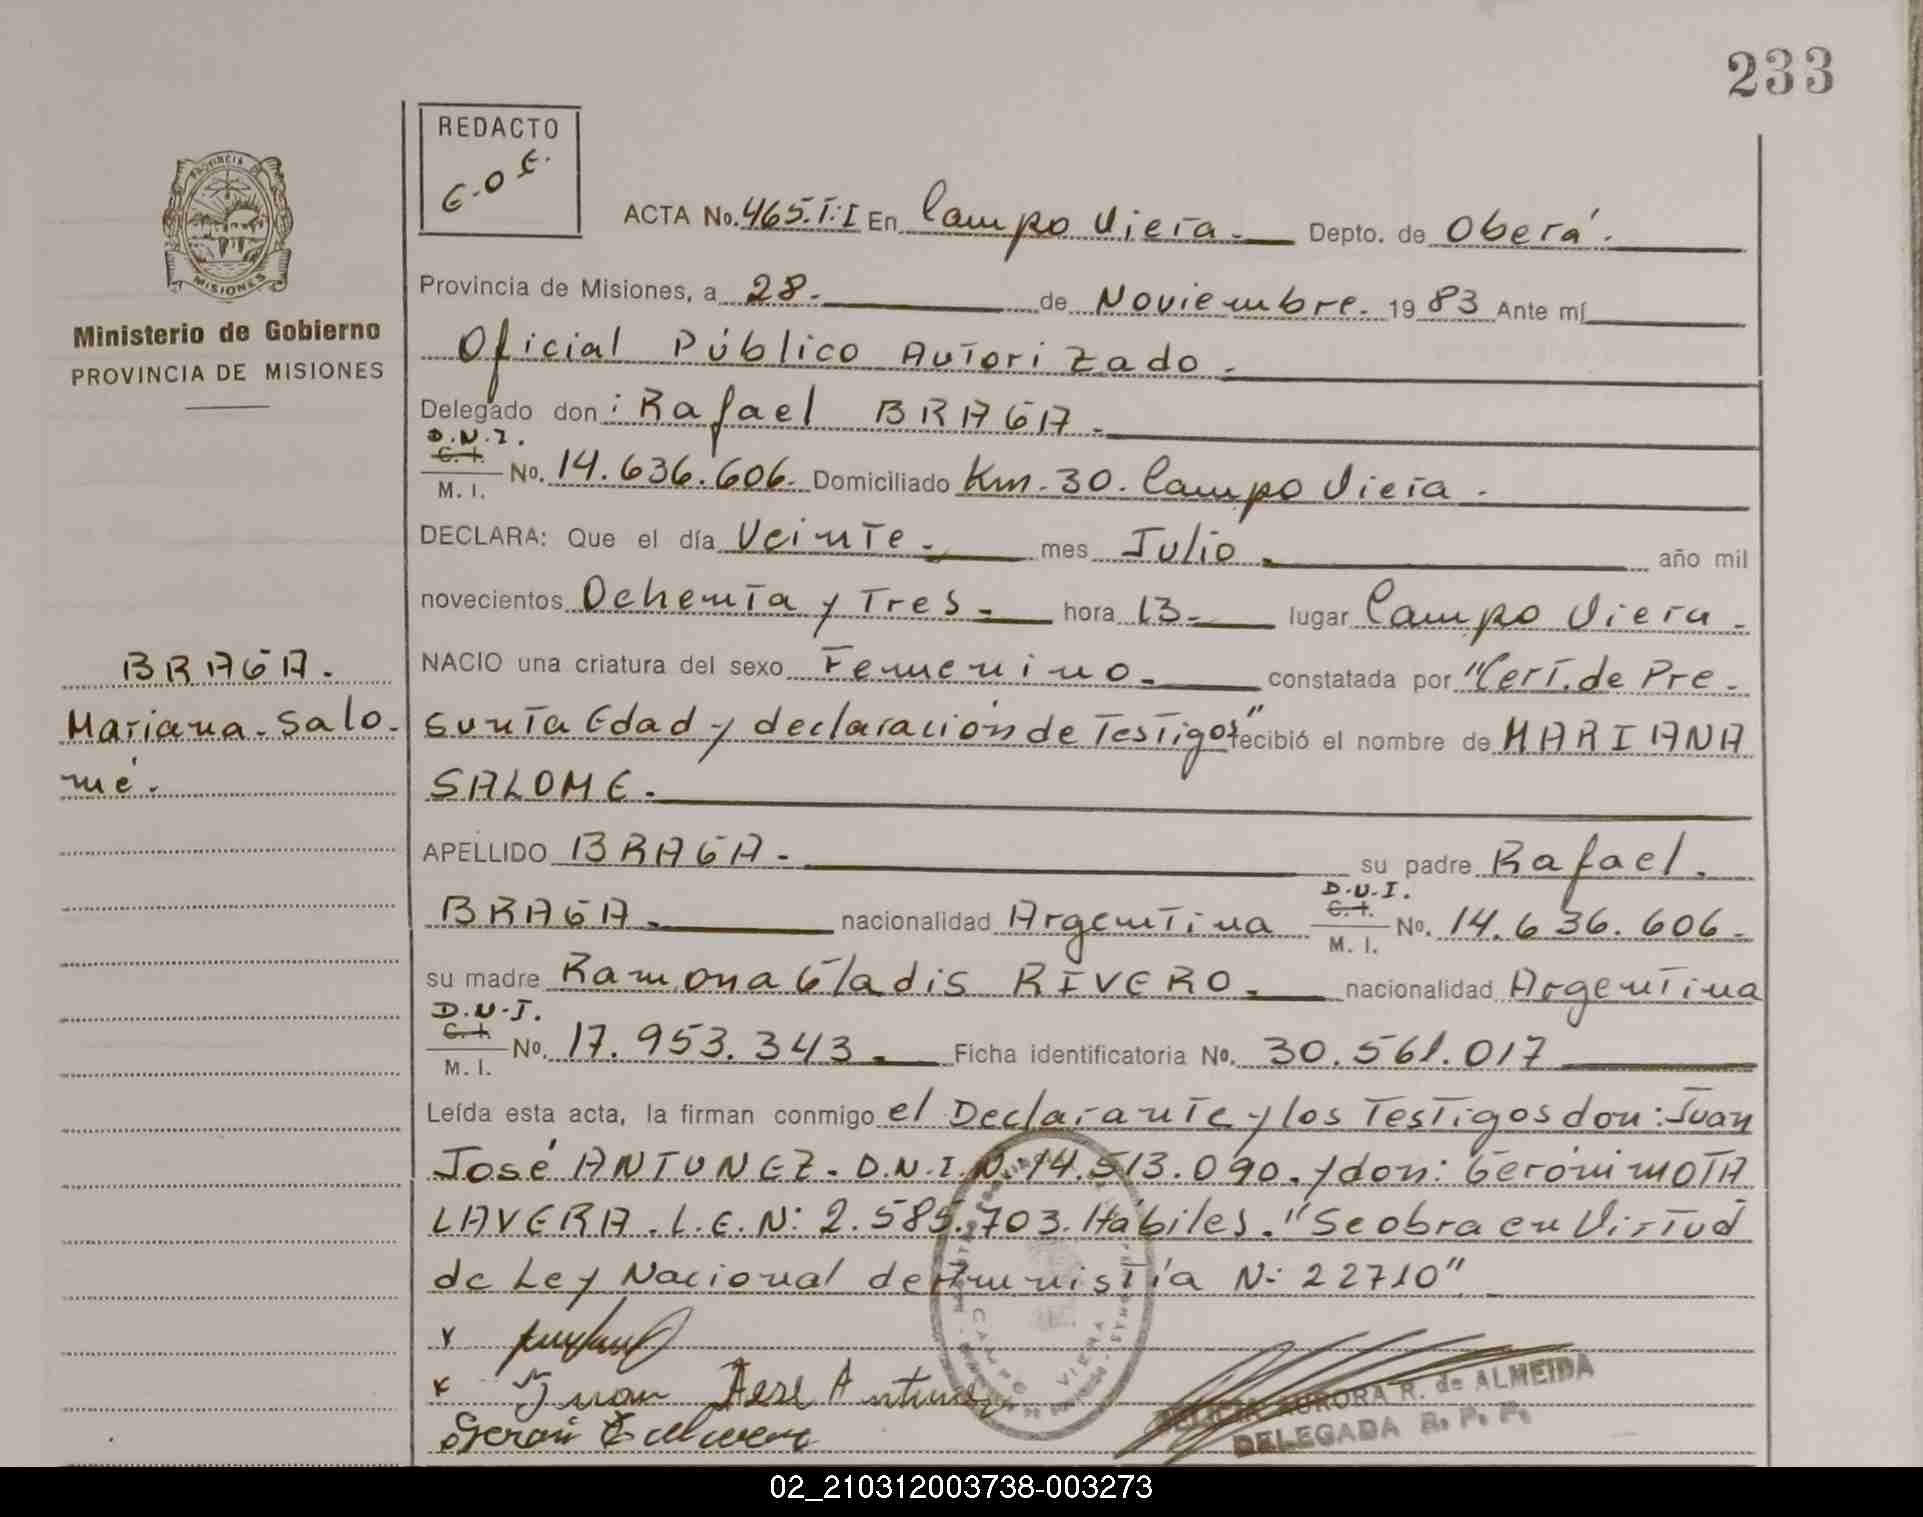 233
REDACTO
G.O.E.
PROVINCIA DE
MISIONES
Ministerio de Gobierno
PROVINCIA DE MISIONES
ACTA No. 465.T:I En Campo Viera. Depto. de Oberá.
Provincia de Misiones, a 28. de Noviembre. 1983 Ante mí
Oficial Público Autorizado.
Delegado don: Rafael BRAGA.
D.N.I.
C. I.
M. I. No. 14.636.606. Domiciliado Km. 30. Campo Viera.
DECLARA: Que el día Veinte. mes Julio. año mil
novecientos Ochenta y Tres. hora 13. lugar Campo Viera.
NACIO una criatura del sexo Femenino. constatada por "Cert. de Pre-
sunta Edad y declaración de Testigos" recibió el nombre de MARIANA
SALOME.
BRAGA.
Mariana. Salo-
mé.
APELLIDO BRAGA. su padre Rafael.
BRAGA. nacionalidad Argentina D.N.I. C. I. M. I. No. 14.636.606.
su madre Ramona Gladis RIVERO. nacionalidad Argentina
D.N.I.
C. I.
M. I. No. 17.953.343. Ficha identificatoria No. 30.561.017
Leída esta acta, la firman conmigo el Declarante y los Testigos don: Juan
José ANTUNEZ. D.N.I.N. 14.513.090. y don: Gerónimo TA
LAVERA. L.E.N: 2.585.703. Hábiles. "Se obra en Virtud
de Ley Nacional de Amnistía N: 22710"
x
x Juan José Antunez
CAMPO VIERA
AURORA R. de ALMEIDA
DELEGADA R. P. P.
02_210312003738-003273